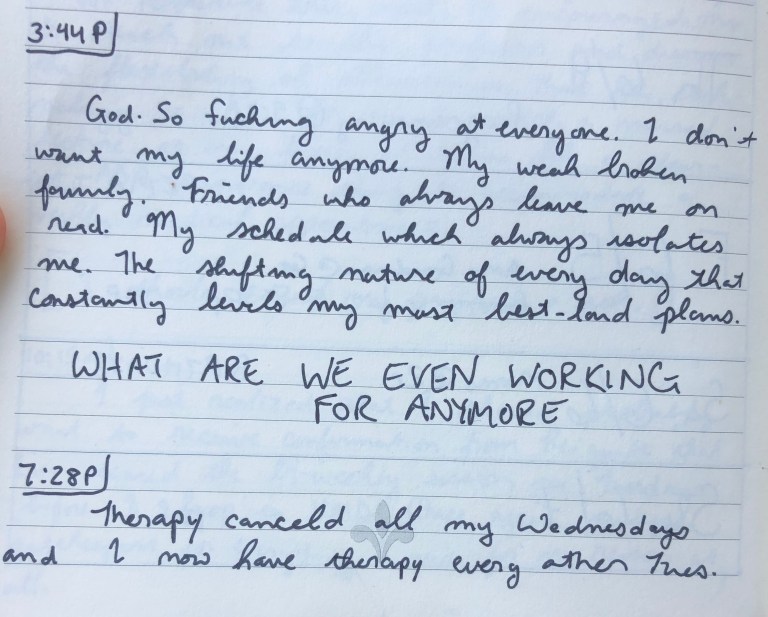 3:44 P
God. So fucking angry at everyone. I don't
want my life anymore. My weak broken
family. Friends who always leave me on
read. My schedule which always isolates
me. The shifting nature of every day that
constantly levels my most best-laid plans.
WHAT ARE WE EVEN WORKING
FOR ANYMORE
7:28P
Therapy canceld all my Wednesdays
and I now have therapy every other Tues.